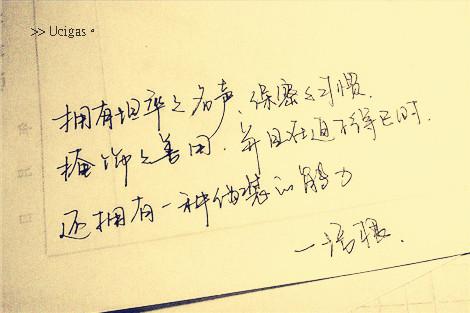 >> Ucigas。
拥有坦率之名声、保密之习惯、
掩饰之善用、并且在迫不得已时、
还拥有一种伪装的能力